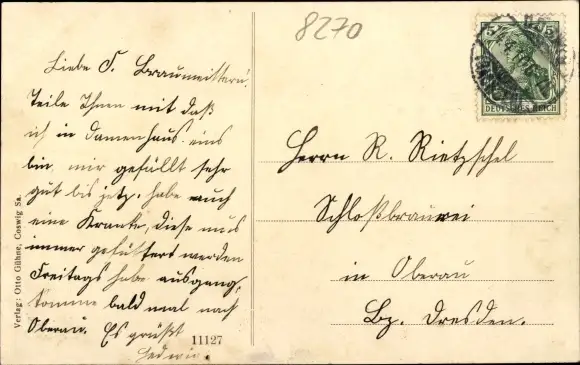 8270
Liebe F. Braumeistern!
Teile Ihnen mit daß
ich in Damenhaus eins
bin, mir gefällt sehr
gut bis jetz. habe auch
eine Kranke, diese muß
immer gefüttert werden
Freitags habe ausgang,
komme bald mal nach
Oberau. Es grüßt
Hedwig.
11127
Verlag: Otto Gühne, Coswig Sa.
DEUTSCHES REICH
Herrn R. Rietzschel
Schloßbrauerei
in Oberau
Bz. Dresden.